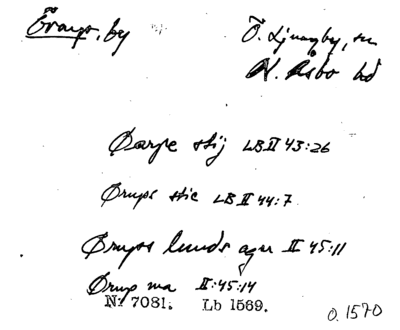 Örups, by
Ö. Ljungby, sn
N. Åsbo hd
Øarpe stij LB II 43:26
Ørups stie LB II 44:7
Ørups lunds agre II 45:11
Ørup ma II:45:14
Nr 7081. Lb 1569.
o. 1570